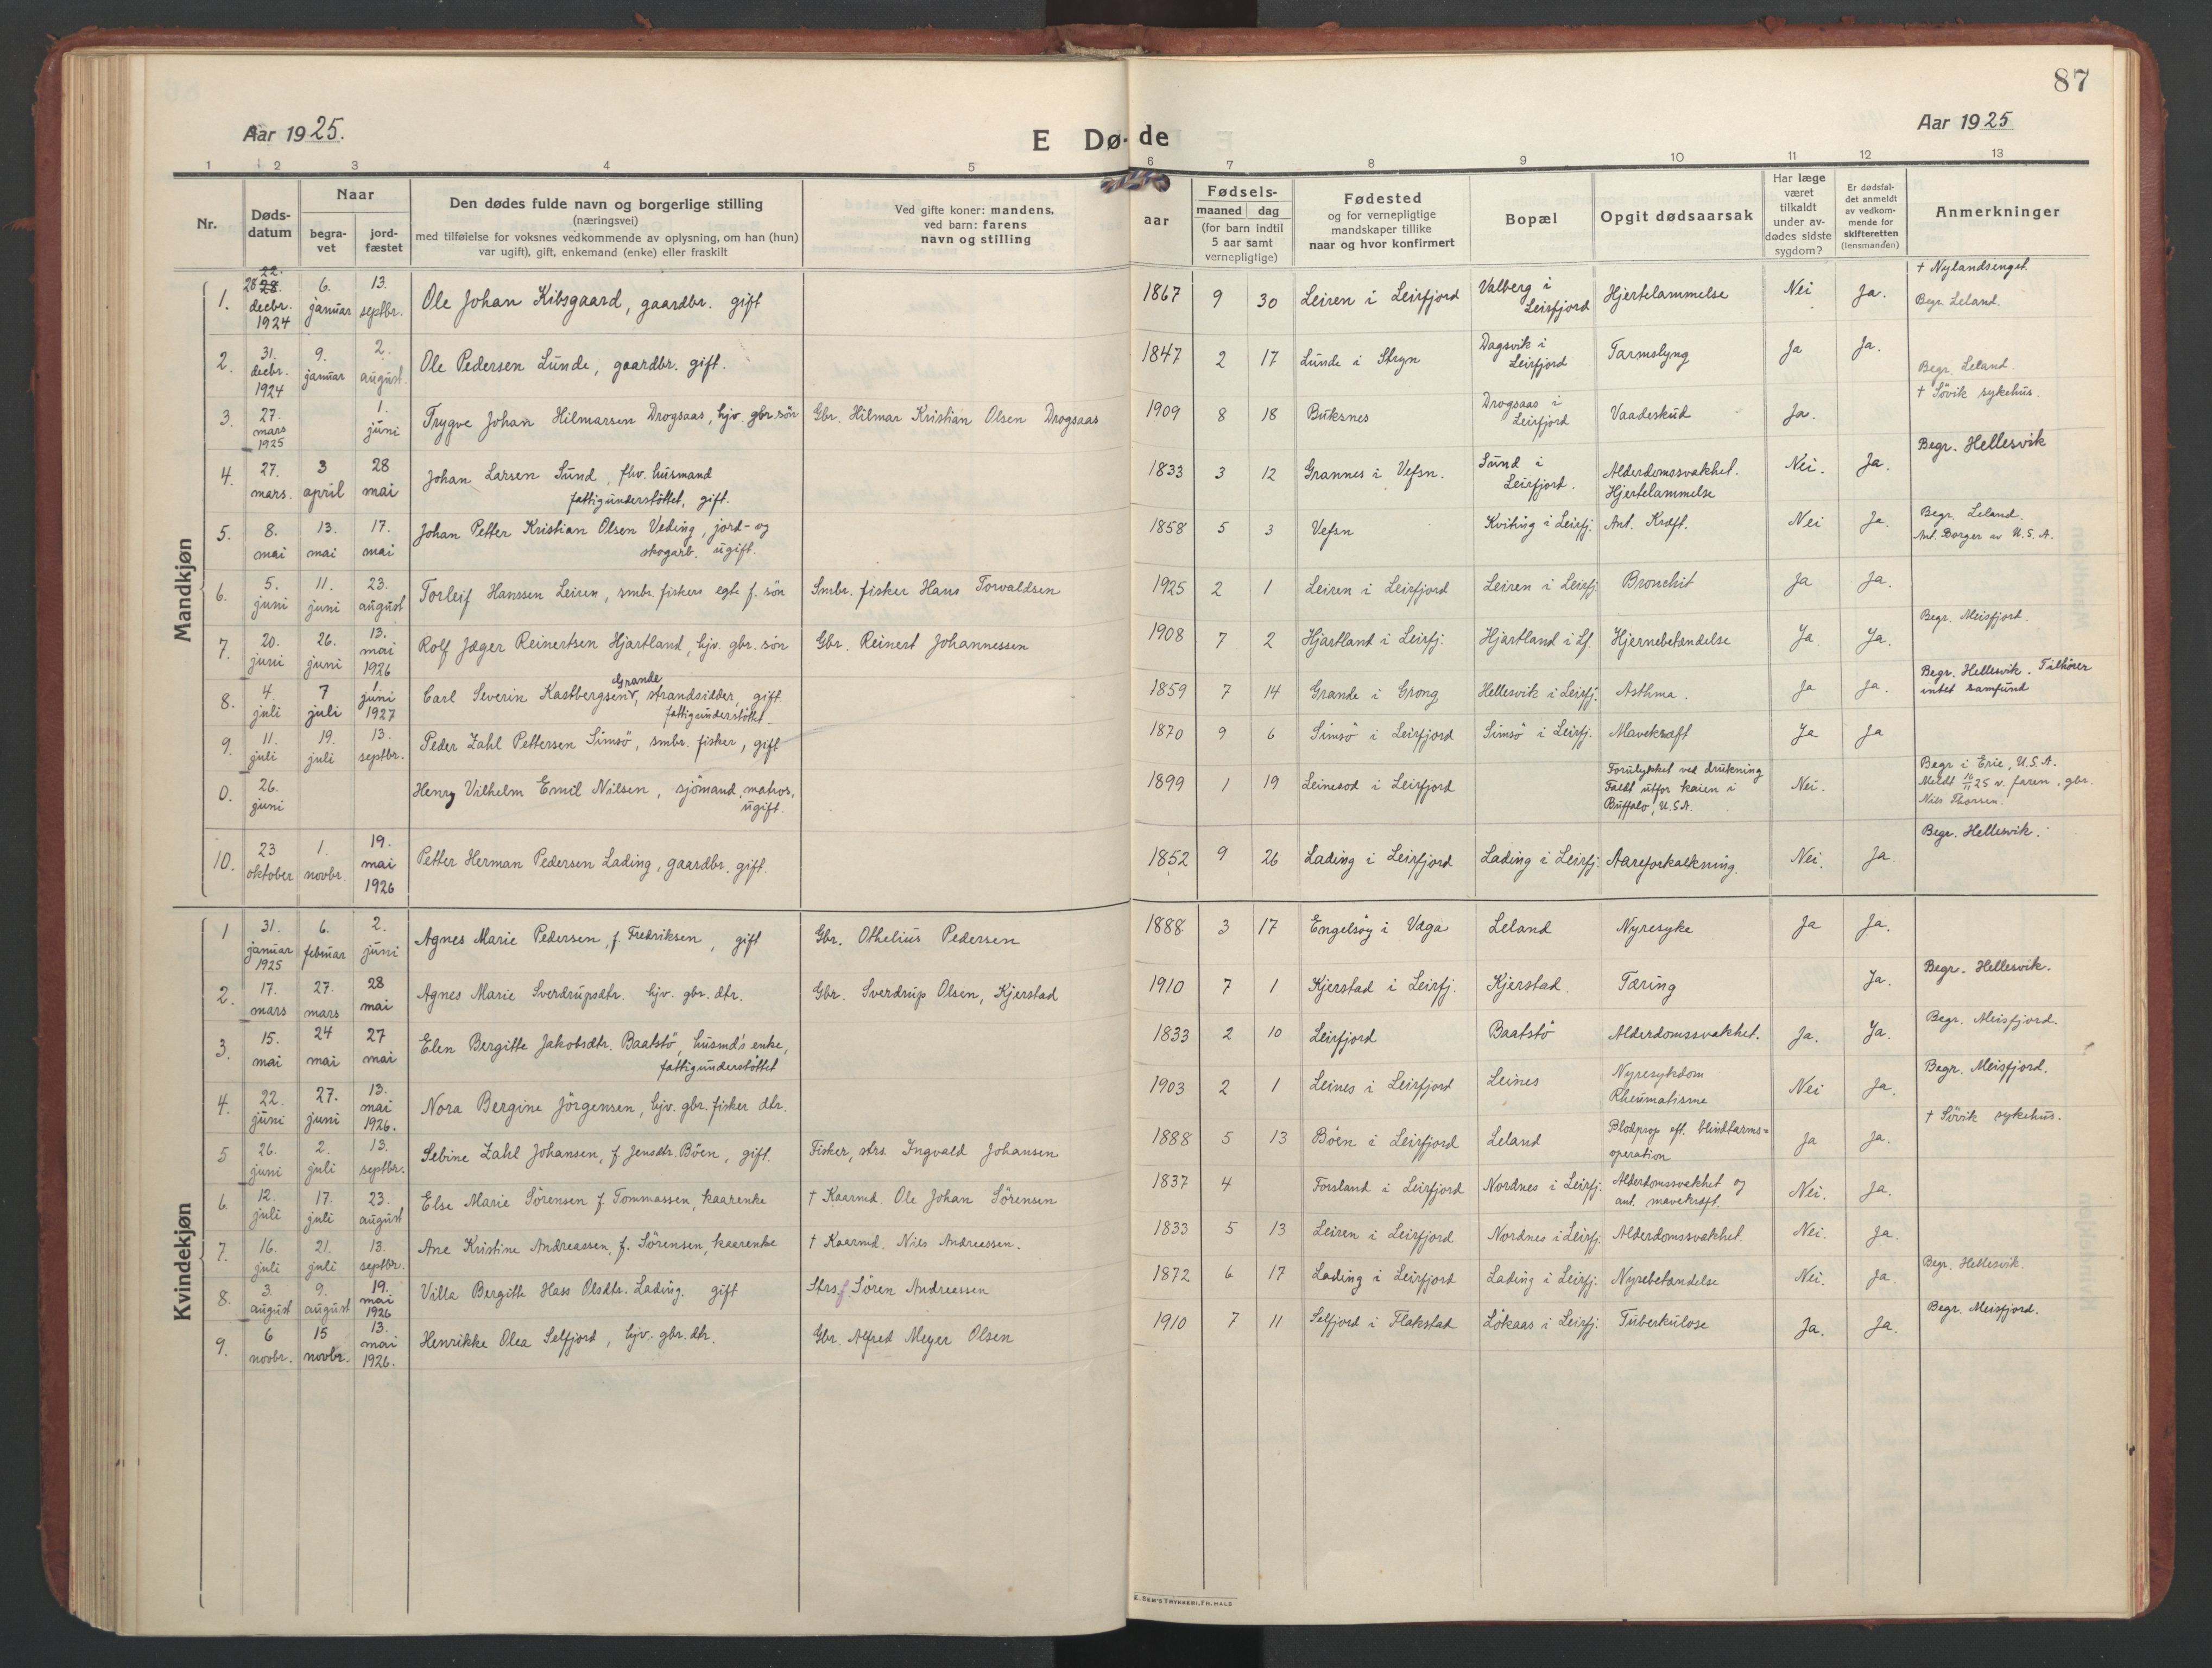 87
Aar 1925.
E Dø- de
Aar 1925
1 2 3 4 5 6 7 8 9 10 11 12 13
Nr.
Døds-
datum
Naar
begra-
vet
jord-
fæstet
Den dødes fulde navn og borgerlige stilling
(næringsvei)
med tilføielse for voksnes vedkommende av oplysning, om han (hun)
var ugift), gift, enkemand (enke) eller fraskilt
Ved gifte koner: mandens,
ved barn: farens
navn og stilling
aar
Fødsels-
maaned dag
(for barn indtil
5 aar samt
vernepligtige)
Fødested
og for vernepligtige
mandskaper tillike
naar og hvor konfirmert
Bopæl
Opgit dødsaarsak
Har læge
været
tilkaldt
under av-
dødes sidste
sygdom?
Er dødsfal-
det anmeldt
av vedkom-
mende for
skifteretten
(lensmanden)
Anmerkninger
Mandkjøn
1. 28 decbr. 1924 6. januar 13. septbr. Ole Johan Kibsgaard, gaardbr. gift 1867 9 30 Leiren i Leirfjord Valberg i Leirfjord Hjertelammelse Nei Ja. † Nylandsenget. Begr. Leland.
2. 31. decbr. 1924 9. januar 2. august. Ole Pedersen Lunde, gaardbr. gift. 1847 2 17 Lunde i Stryn Dagsvik i Leirfjord Tarmslyng Ja Ja. Begr. Leland.
3. 27. mars 1925 1. juni Trygve Johan Hilmarsen Drogsaas, hjv. gbr. søn Gbr. Hilmar Kristian Olsen Drogsaas 1909 8 18 Buksnes Drogsaas i Leirfjord Vaadeskud Ja. † Søvik sykehus.
4. 27. mars. 3 april 28 mai Johan Larsen Sund, fhv. husmand fattigunderstøttet, gift. 1833 3 12 Grannes i Vefsn. Sund i Leirfjord. Alderdomssvakhet. Hjertelammelse Nei. Ja. Begr. Hellesvik
5. 8. mai 13. mai 17. mai Johan Petter Kristian Olsen Veding, jord- og skogarb. ugift. 1858 5 3 Vefsn Kviting i Leirfj. Ant. Kræft. Nei Ja. Begr. Leland. Ant. Borger av U.S.A.
6. 5. juni 11. juni 23. august Torleif Hanssen Leiren, smbr. fiskers egte f. søn Smbr. fisker Hans Torvaldsen 1925 2 1 Leiren i Leirfjord Leiren i Leirfj. Bronchit Ja Ja.
7. 20. juni 26. juni 13. mai 1926 Rolf Jæger Reinertsen Hjartland, hjv. gbr. søn Gbr. Reinert Johannessen 1908 7 2 Hjartland i Leirfj. Hjartland i Lf. Hjernebetændelse Ja Ja. Begr. Meisfjord.
8. 4. juli 7 juli 1 juni 1927 Carl Severin Kastbergsen Grande, strandsidder, gift fattigunderstøttet 1859 7 14 Grande i Grong Hellesvik i Leirfj. Asthma. Ja Ja. Begr. Hellesvik. Tilhører intet samfund
9. 11. juli 19. juli 13. septbr. Peder Zahl Pettersen Simsø, smbr. fisker, gift 1870 9 6 Simsø i Leirfjord Simsø i Leirfj. Mavekræft Ja Ja
0. 26. juni Henry Vilhelm Emil Nilsen, sjømand, matros, ugift. 1899 1 19 Leinesod i Leirfjord Forulykket ved drukning Faldt utfor kaien i Buffalo, U.S.A. Nei. Begr i Erie, U.S.A. Meldt 16/11 25 v. faren, gbr. Nils Thorsen.
10. 23 oktober 1. novbr. 19. mai 1926 Petter Herman Pedersen Lading, gaardbr. gift. 1852 9 26 Lading i Leirfjord Lading i Leirfj. Aareforkalkning. Nei. Ja. Begr. Hellesvik.
Kvindekjøn
1 31. januar 1925 6. februar 2. juni Agnes Marie Pedersen, f. Fredriksen, gift Gbr. Othelius Pedersen 1888 3 17 Engelsøy i Væga Leland Nyresyke Ja Ja.
2. 17. mars 27. mars 28 mai Agnes Marie Sverdrupsdtr. hjv. gbr. dtr. Gbr. Sverdrup Olsen, Kjerstad 1910 7 1 Kjerstad i Leirfj. Kjerstad. Tæring Ja. Begr. Hellesvik.
3. 15. mai 24 mai 27 mai Elen Bergitte Jakobsdtr. Baatstø, husmd's enke, fattigunderstøttet 1833 2 10 Leirfjord Baatstø Alderdomssvakhet. Ja. Ja. Begr. Meisfjord.
4. 22. juni 27. juni 13. mai 1926. Nora Bergine Jørgensen, hjv. gbr. fisker dtr. 1903 2 1 Leines i Leirfjord Leines Nyresykdom Rheumatisme Nei Ja. Begr. Meisfjord.
5 26. juni 2. juli 13. septbr. Sebine Zahl Johansen, f. Jensdtr. Bøen, gift. Fisker, strs. Ingvald Johansen 1888 5 13 Bøen i Leirfjord Leland Blodprop eft. blindtarms=operation Ja Ja. † Søvik sykehus.
6. 12. juli 17. juli 23. august Else Marie Sørensen f. Tommassen, kaarenke † Kaarmd. Ole Johan Sørensen 1837 4 Forsland i Leirfjord Nordnes i Leirfj. Alderdomssvakhet og ant. mavekræft. Nei. Ja.
7. 16. juli 21. juli 13. septbr. Ane Kristine Andreassen, f. Sørensen, kaarenke † Kaarmd. Nils Andreessen. 1833 5 13 Leiren i Leirfjord Nordnes i Leirfj. Alderdomssvakhet. Nei. Ja.
8. 3. august 9. august 19. mai 1926 Villa Bergitte Hass Olsdtr. Lading. gift Strs. Søren Andreassen 1872 6 17 Lading i Leirfjord Lading i Leirfj. Nyrebetændelse Nei. Ja. Begr. Hellesvik.
9. 6 novbr. 15 novbr. 13. mai 1926. Henrikke Olea Selfjord, hjv. gbr. dtr. Gbr. Alfred Meyer Olsen 1910 7 11 Selfjord i Flakstad Løkaas i Leirfj. Tuberkulose Ja. Ja. Begr. Meisfjord.
E. SEM'S TRYKKERI, FR.HALD